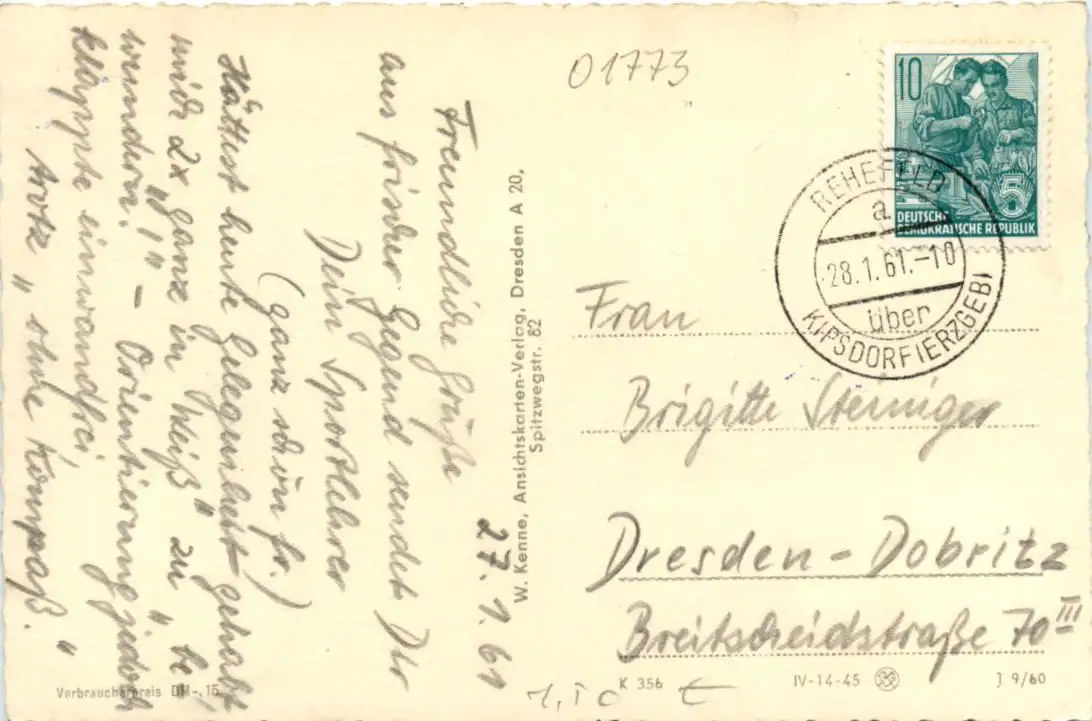 27. 1. 61
Freundliche Grüße
aus frischer Gegend sendet Dir
Dein Sportlehrer
(ganz schön fr.)
Hättest heute Gelegenheit gehabt,
mich 2x ganz in "Weiß" zu "be,
wundern." "1" - Orientierung jedoch
klappte einwandfrei,
trotz "ohne Kompaß."
Verbraucherpreis DM -,15
W. Kenne, Ansichtskarten-Verlag, Dresden A 20,
Spitzwegstr. 62
01773
10
5
DEUTSCHE
DEMOKRATISCHE REPUBLIK
REHEFELD
a
28.1.61.-10
über
KIPSDORF(ERZGEB)
Frau
Brigitte Steiniger
Dresden-Dobritz
Breitscheidstraße 70 III
K 356
IV-14-45
J 9/60